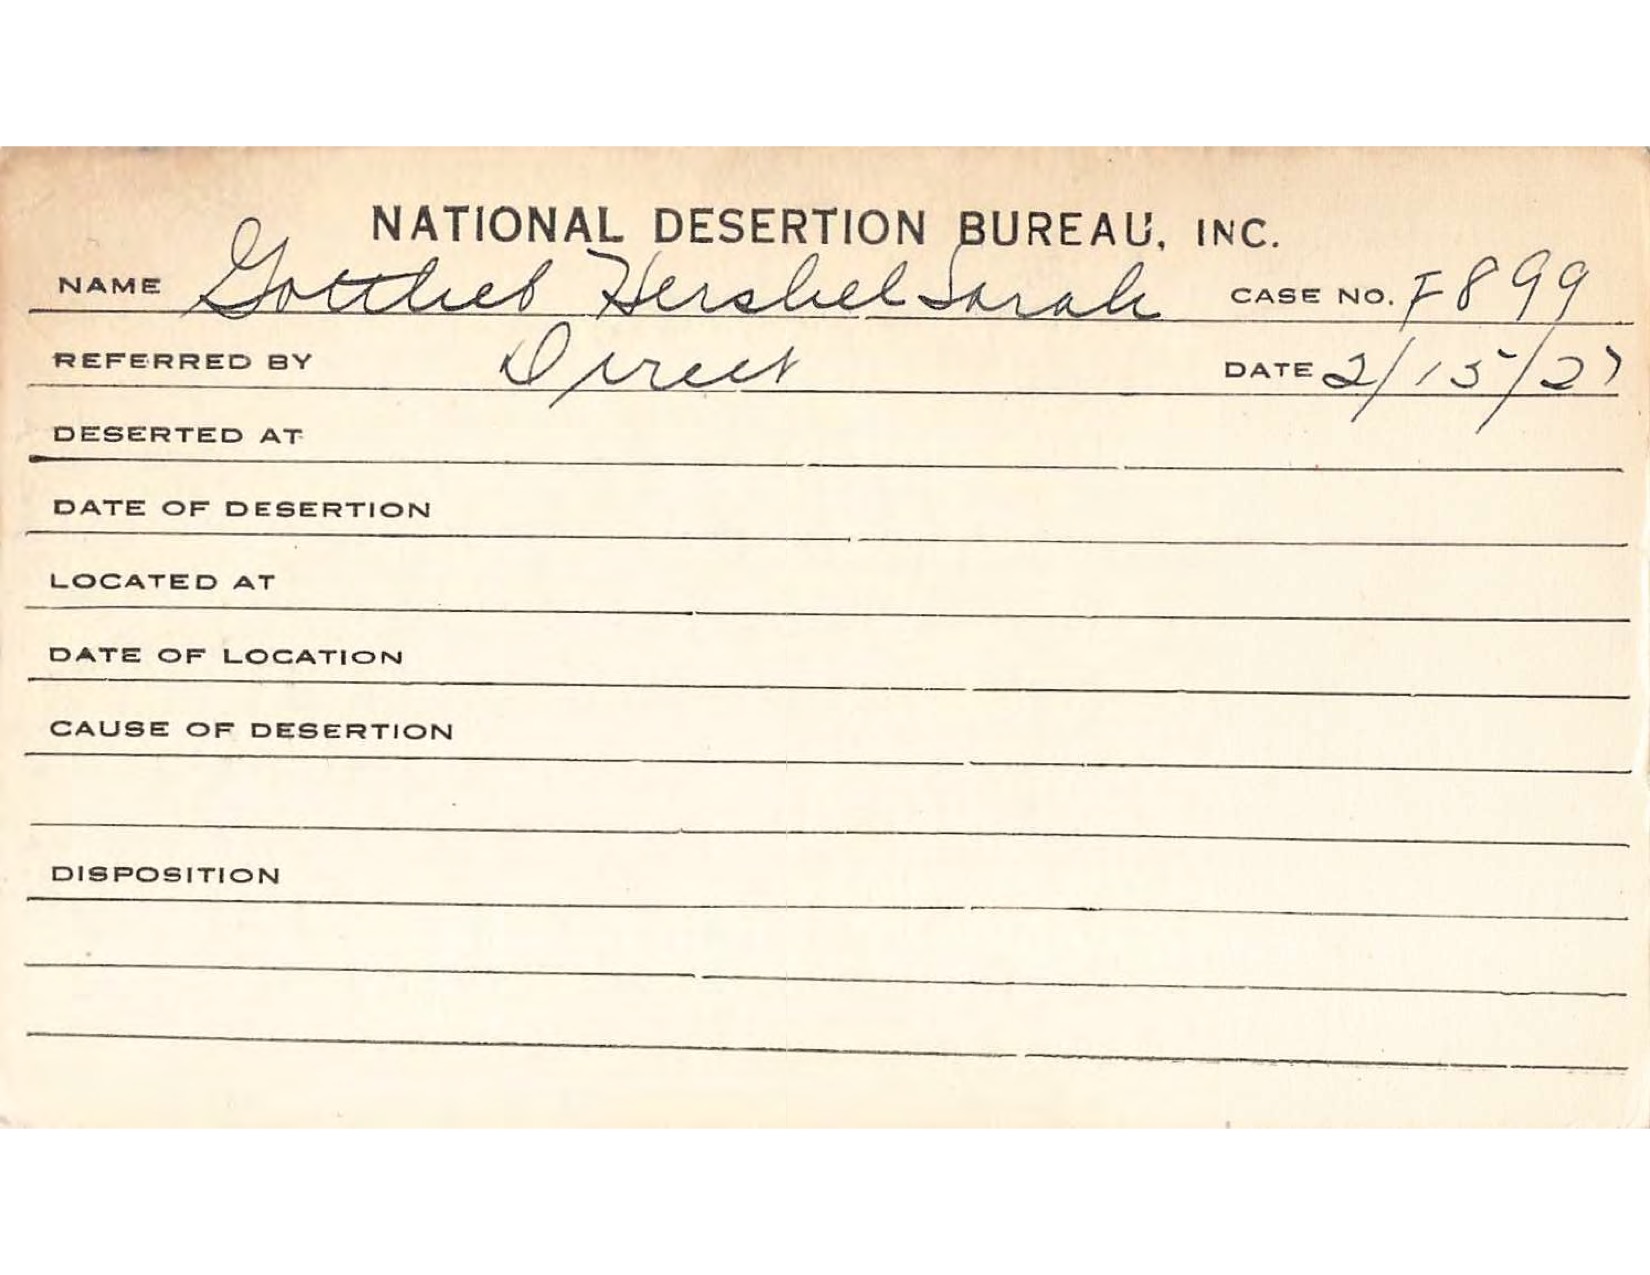 NATIONAL DESERTION BUREAU, INC.
NAME Gottlieb Hershel Sarah CASE NO. F899
REFERRED BY Direct DATE 2/15/27
DESERTED AT
DATE OF DESERTION
LOCATED AT
DATE OF LOCATION
CAUSE OF DESERTION
DISPOSITION